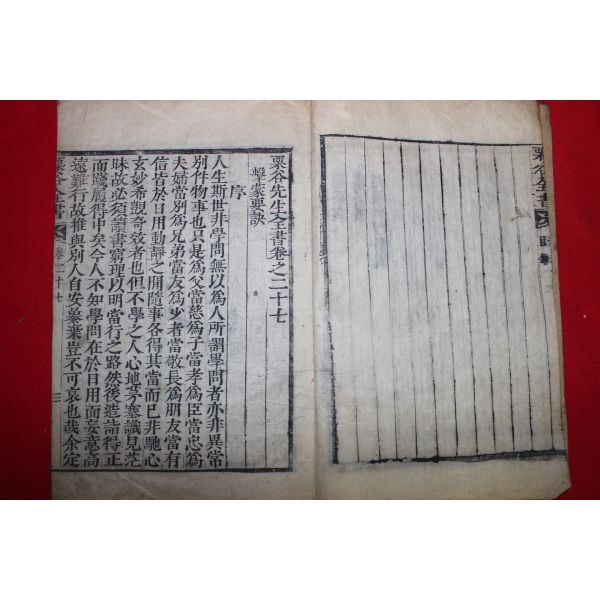 栗谷全書
栗谷先生全書卷之二十七
擊蒙要訣
序
人生斯世非學問無以爲人所謂學問者亦非異常
別件物事也只是爲父當慈爲子當孝爲臣當忠爲
夫婦當別爲兄弟當友爲少者當敬長爲朋友當有
信皆於日用動靜之間隨事各得其當而已非馳心
玄妙希覬奇效者也但不學之人心地茅塞識見茫
昧故必須讀書窮理以明當行之路然後造詣得正
而踐履得中矣今人不知學問在於日用而妄意高
遠難行故推與別人自安暴棄豈不可哀也哉余定
栗谷全書 卷二十七